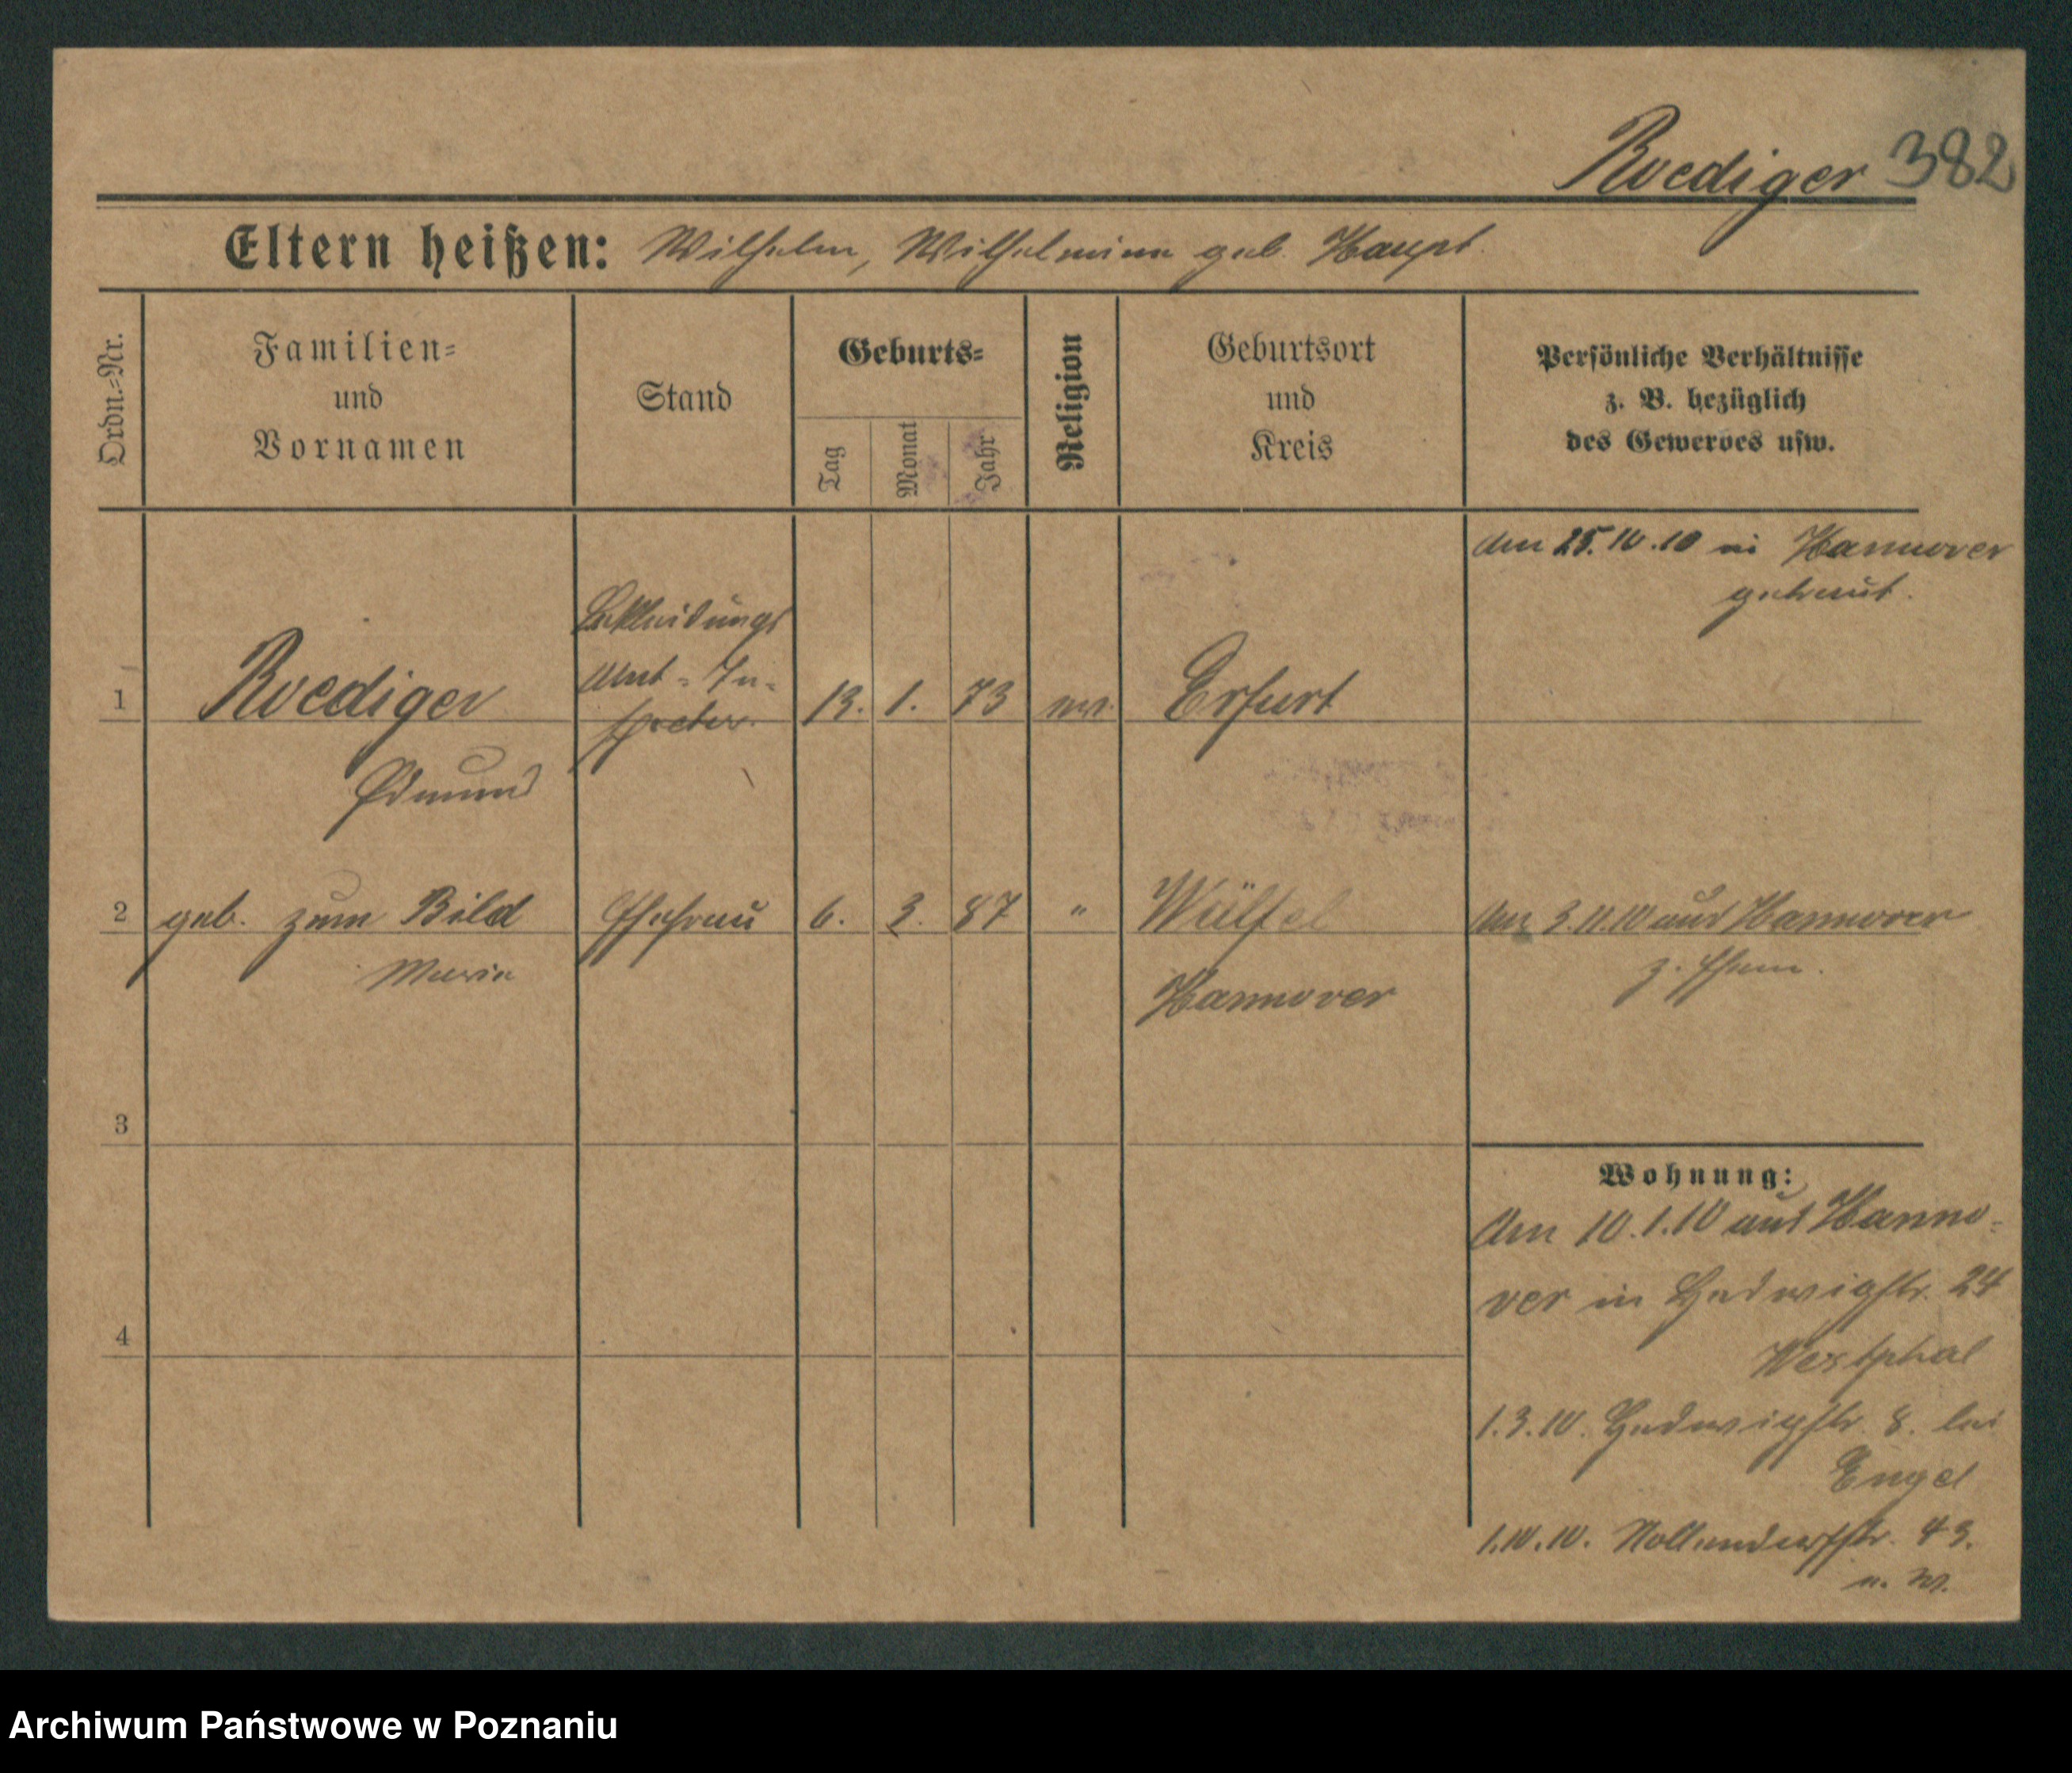 Roediger 382
Eltern heißen: Wilhelm, Wilhelmine geb. Haupt.
Ordn.-Nr.
Familien-
und
Vornamen
Stand
Geburts-
Tag
Monat
Jahr
Religion
Geburtsort
und
Kreis
Persönliche Verhältnisse
z. B. bezüglich
des Gewerbes usw.
Am 25.10.10 in Hannover
getraut.
Bekleidungs
Amt-In-
spector.
1 Roediger 13. 1. 73 ev. Erfurt
Edmund
2 geb. zum Bild Ehefrau 6. 3. 87 " Wülfel Am 3.11.10 aus Hannover
Marie z. Ehem.
Hannover
3
Wohnung:
Am 10.1.10 aus Hanno-
ver in Hedwigstr. 24
4
Westphal
1.3.10. Hedwigstr. 8. bei
Engel
1.10.10. Nollendorfstr. 43.
Archiwum Państwowe w Poznaniu